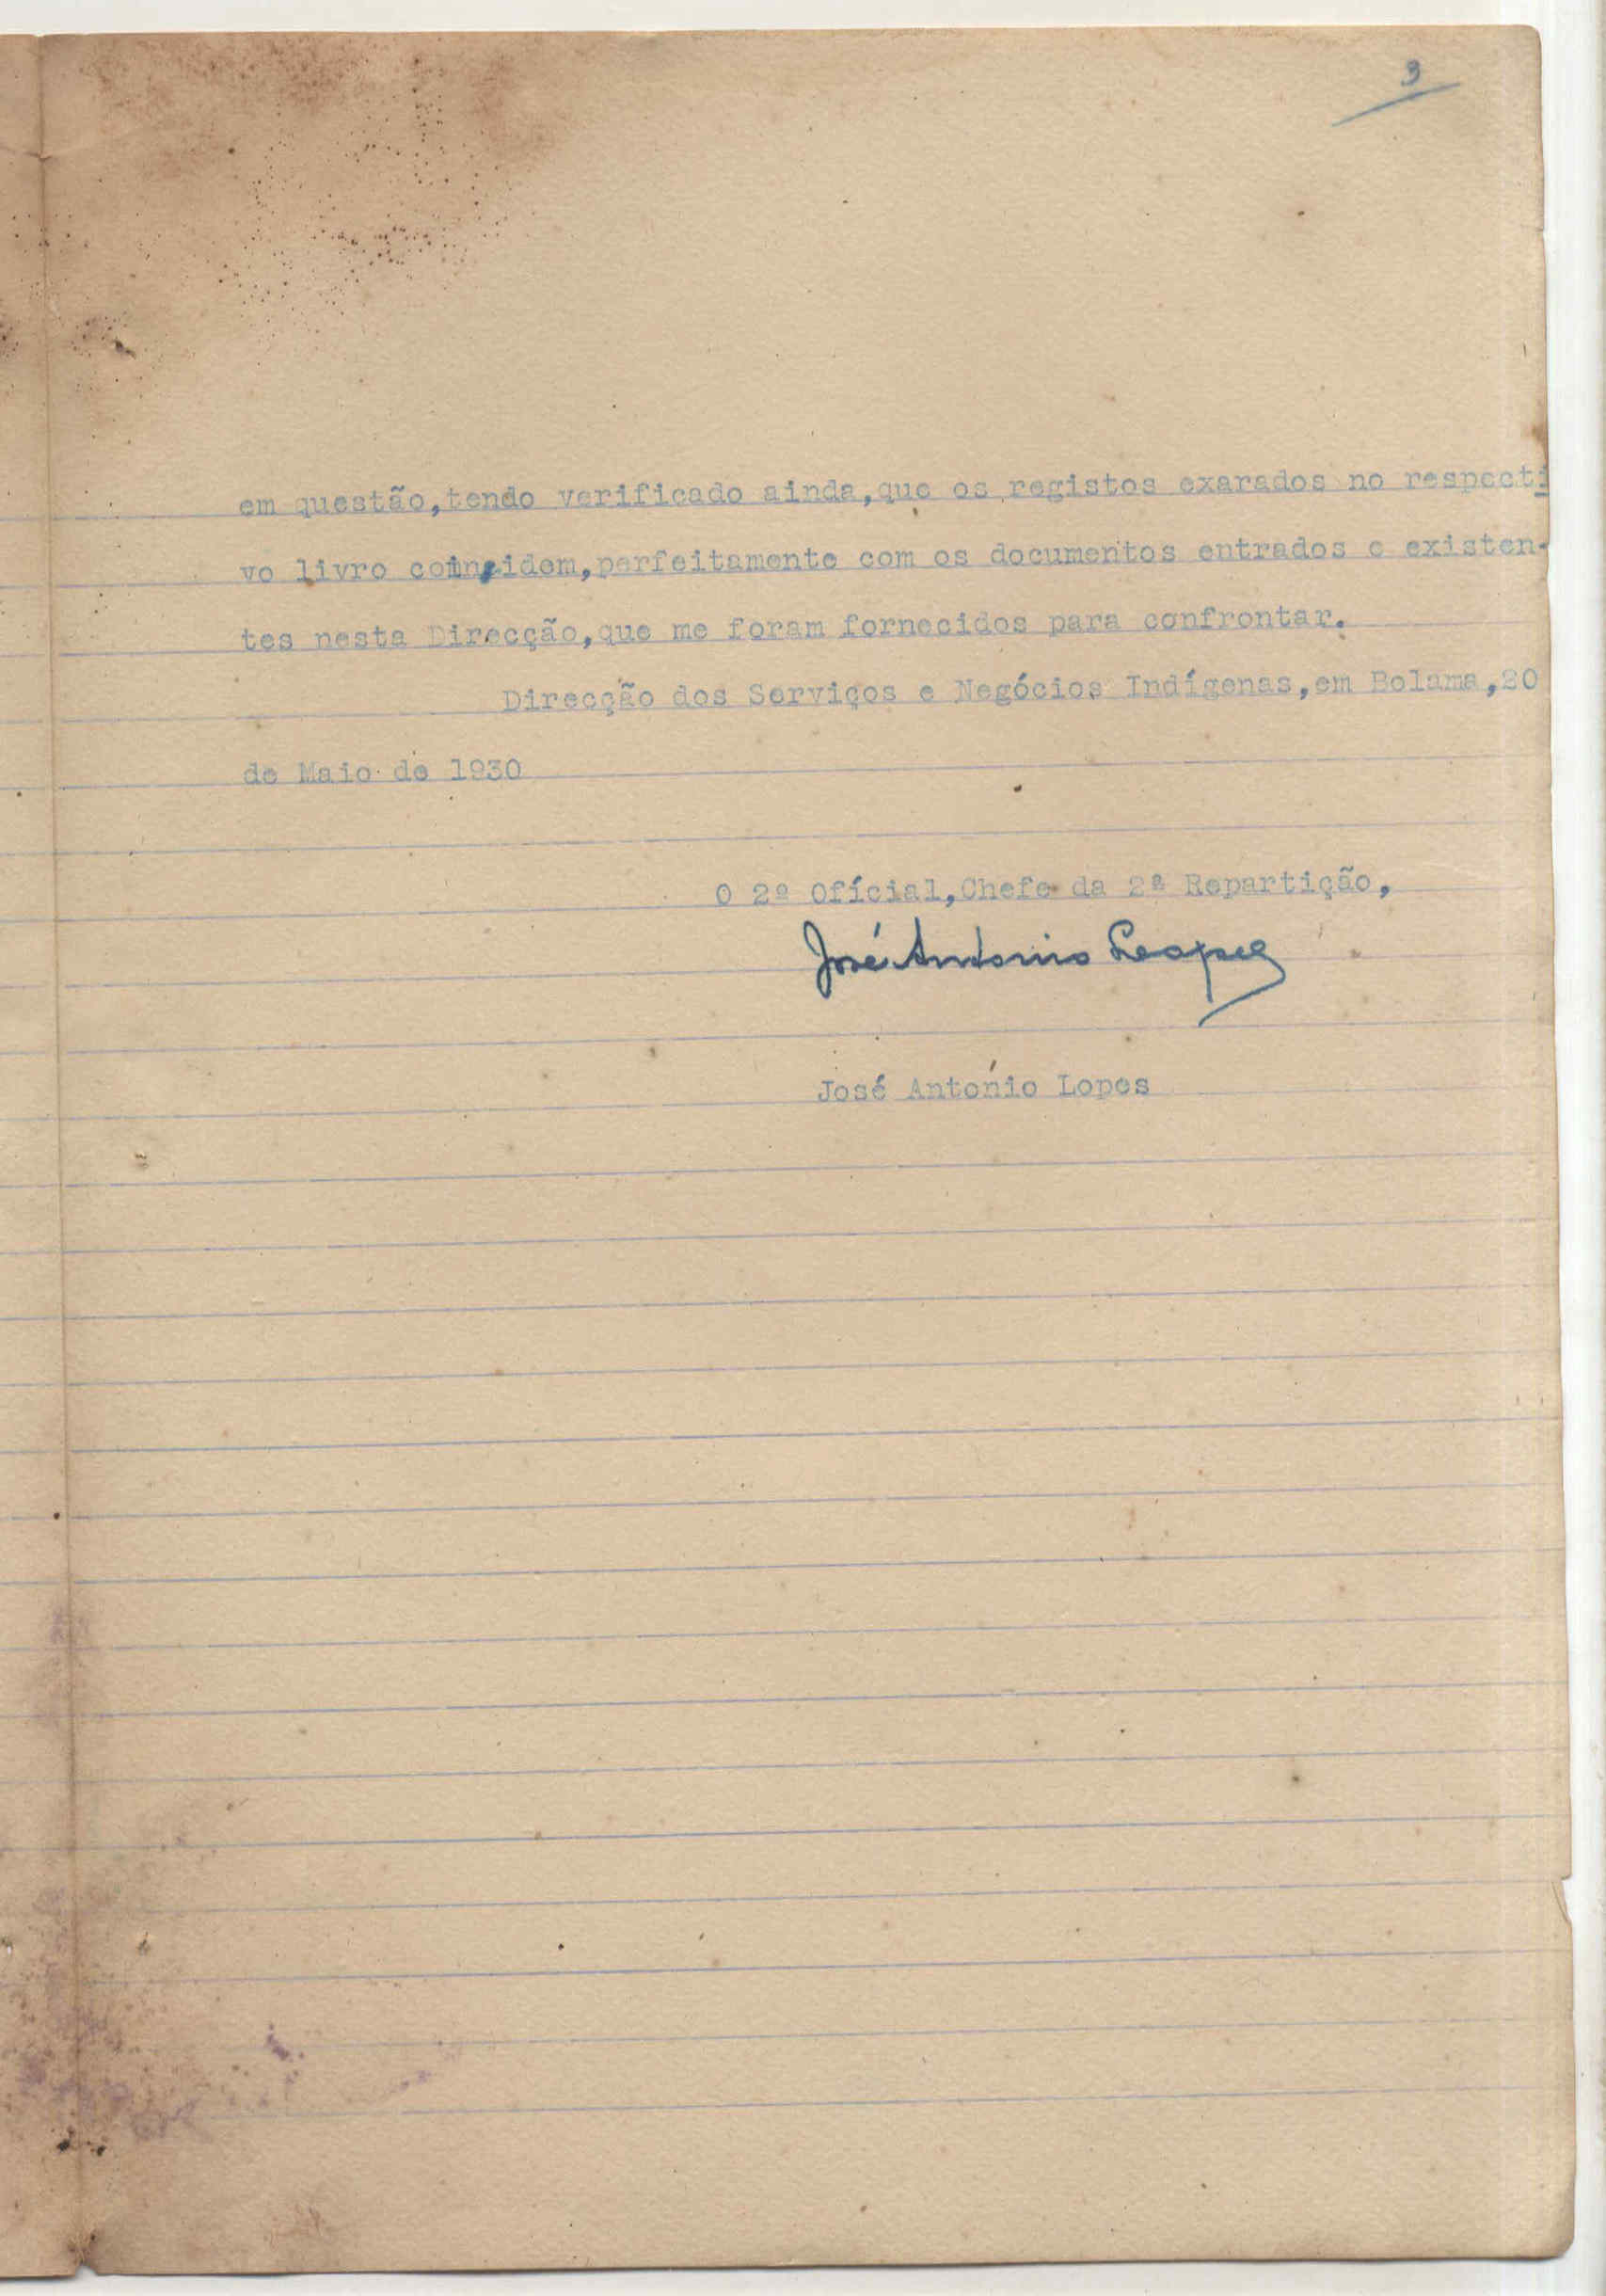 3
em questão,tendo verificado ainda,que os registos exarados no respecti
vo livro coincidem,perfeitamente com os documentos entrados e existen-
tes nesta Direcção,que me foram fornecidos para confrontar.
Direcção dos Serviços e Negócios Indígenas,em Bolama,20
de Maio de 1930
O 2º Ofícial,Chefe da 2ª Repartição,
José Antonio Lopes
José António Lopes